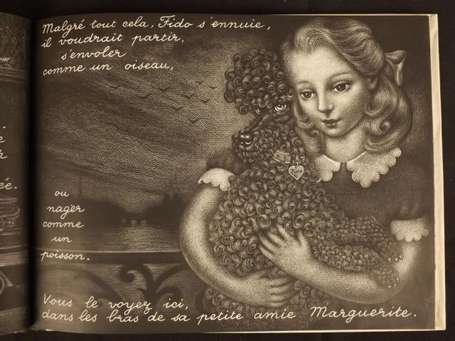 Malgré tout cela, Fido s'ennuie,
il voudrait partir,
s'envoler
comme un oiseau,
ou
nager
comme
un
poisson.
Vous le voyez ici,
dans les bras de sa petite amie Marguerite.